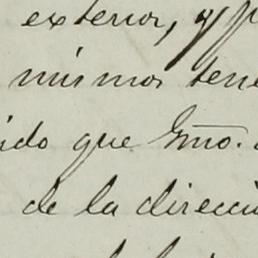 exterior, y p
mismos tene
ido que Gmo.
de la direcci